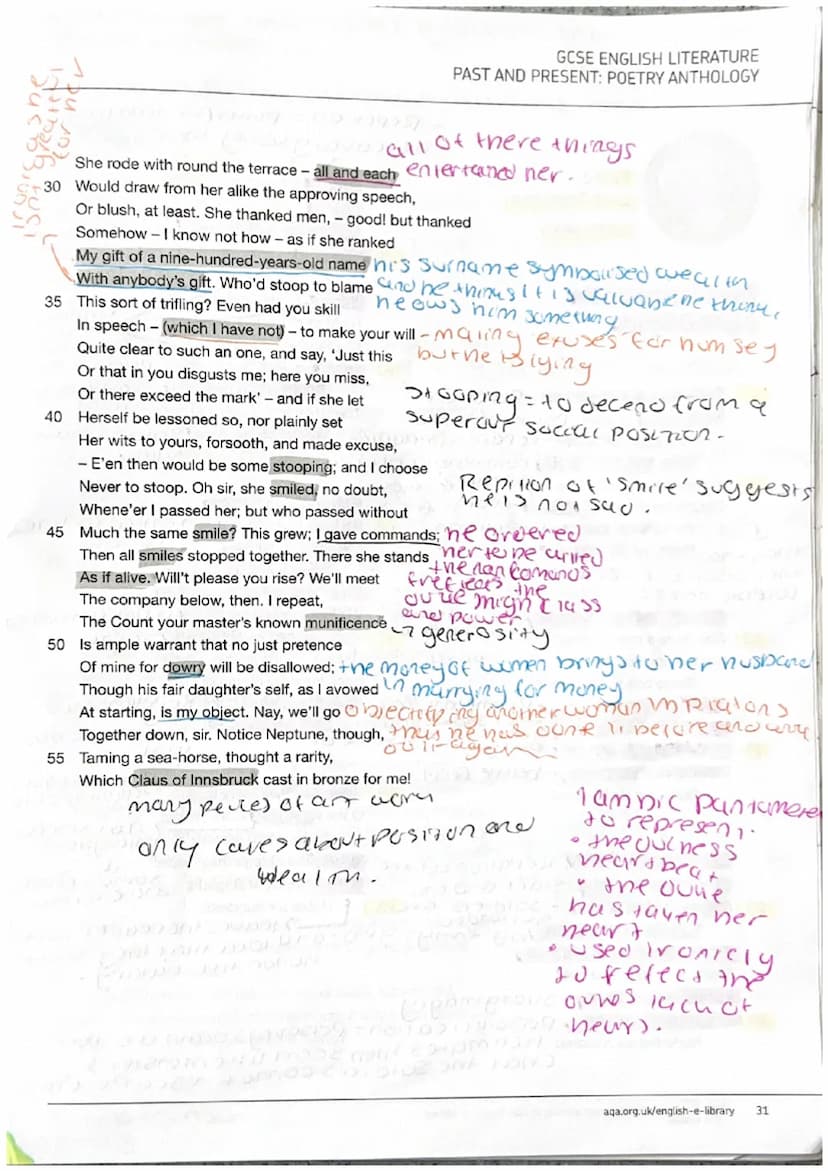 GCSE ENGLISH LITERATURE
PAST AND PRESENT: POETRY ANTHOLOGY
ironic as he
isn't greatful
for her
all of there things
She rode with round the terrace – all and each entertained her.
30 Would draw from her alike the approving speech,
Or blush, at least. She thanked men, – good! but thanked
Somehow – I know not how – as if she ranked
My gift of a nine-hundred-years-old name his surname symbolised wealth
With anybody's gift. Who'd stoop to blame and he thinks it is valuable he thinks
35 This sort of trifling? Even had you skill he ows him something
In speech – (which I have not) – to make your will – making exuses for humsey
Quite clear to such an one, and say, 'Just this but he is lying
Or that in you disgusts me; here you miss,
Or there exceed the mark' – and if she let stooping = to decend from a
40 Herself be lessoned so, nor plainly set superour soccal position.
Her wits to yours, forsooth, and made excuse,
– E'en then would be some stooping; and I choose
Never to stoop. Oh sir, she smiled, no doubt, Repition of 'smile' suggests
Whene'er I passed her; but who passed without he is not sad.
45 Much the same smile? This grew; I gave commands; he ordered
Then all smiles stopped together. There she stands her to be killed
As if alive. Will't please you rise? We'll meet the
The company below, then. I repeat, the
The Count your master's known munificence and power
→ generosity
50 Is ample warrant that no just pretence
Of mine for dowry will be disallowed; the money of women brings to her husband
Though his fair daughter's self, as I avowed in marrying for money
At starting, is my object. Nay, we'll go objectifying another woman
Together down, sir. Notice Neptune, though, thus he has done it before and
55 Taming a sea-horse, thought a rarity, again
Which Claus of Innsbruck cast in bronze for me!
many peices of art work
only cares about position and
wealth.
Iambic pantameter
to represent.
• the duchess
heartbeat
• the duke
has taken her
heart
• used ironicly
to reflect the
lack of
heart.
aqa.org.uk/english-e-library 31